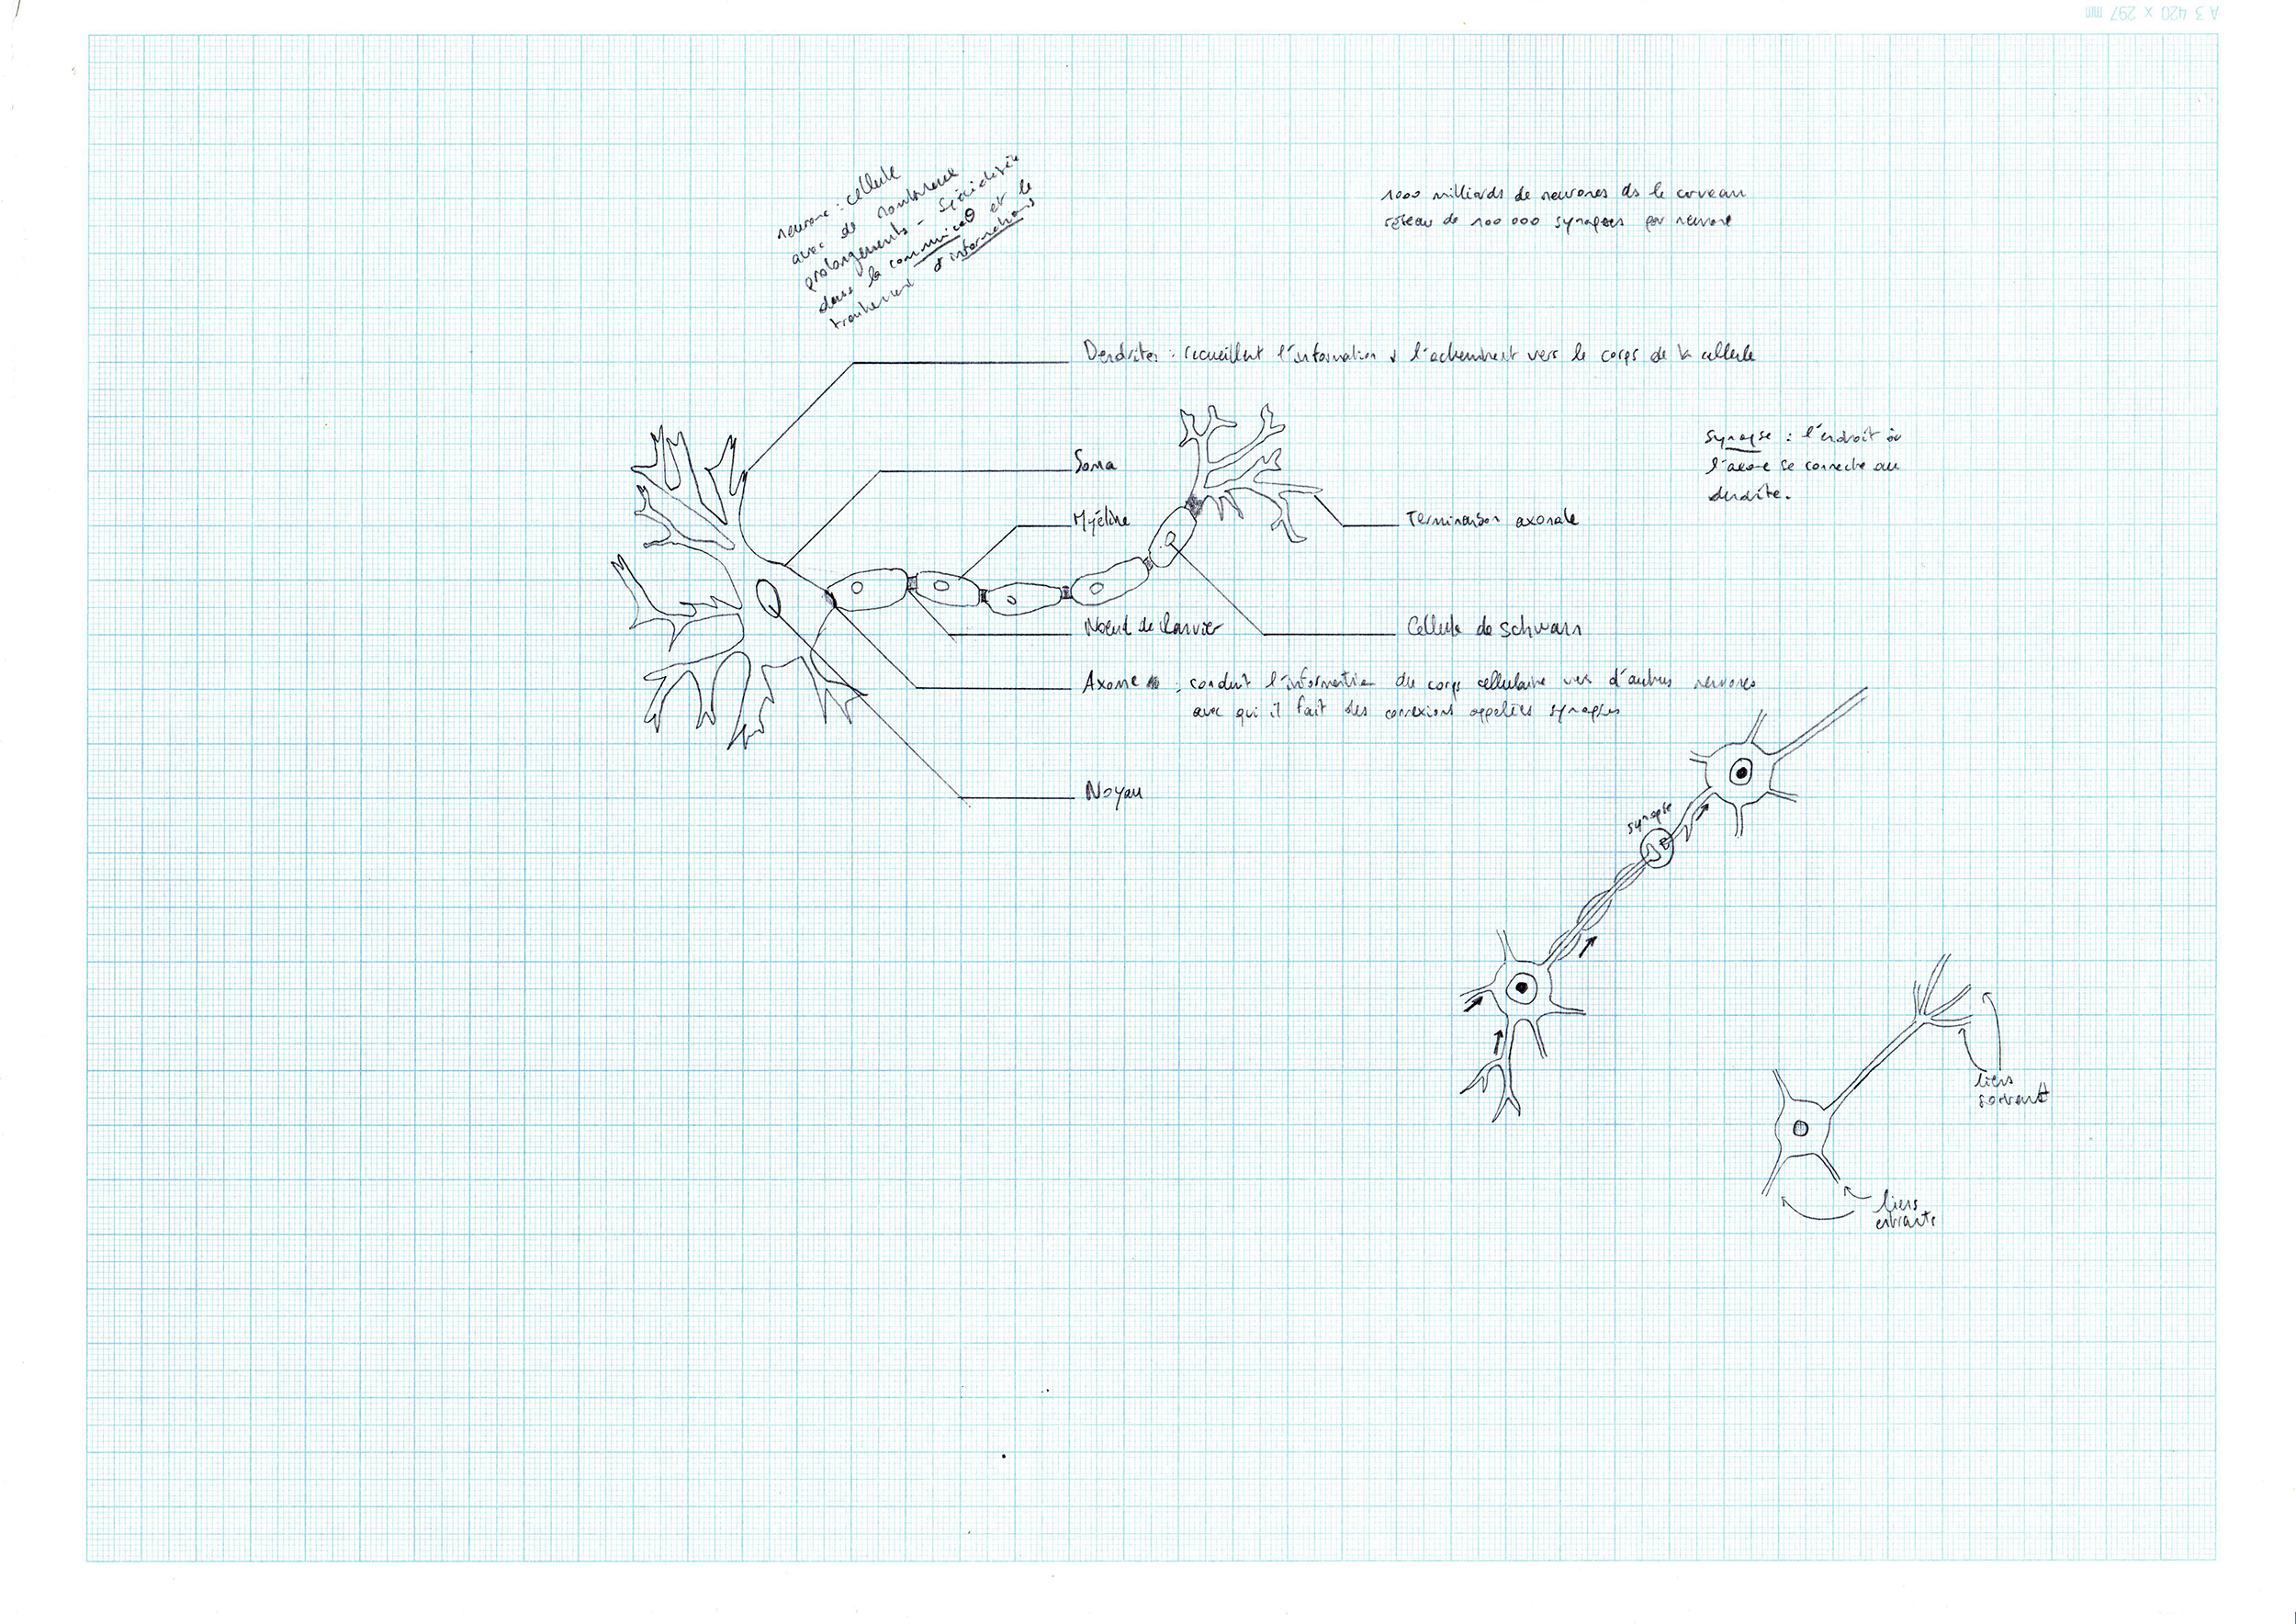 A3 420 x 297 mm
neurone : cellule
avec de nombreux
prolongements - Spécialisée
dans la communicaθ et le
traitement d'informations
1000 milliards de neurones ds le cerveau
réseau de 100 000 synapses par neurone
Dendrites : recueillent l'information & l'acheminent vers le corps de la cellule
Synapse : l'endroit où
l'axone se connecte au
dendrite.
Soma
Myéline
Terminaison axonale
Noeud de Ranvier
Cellule de schwann
Axone : conduit l'information du corps cellulaire vers d'autres neurones
avec qui il fait des connexions appelées synapses
Noyau
synapse
liens
sortants
liens
entrants